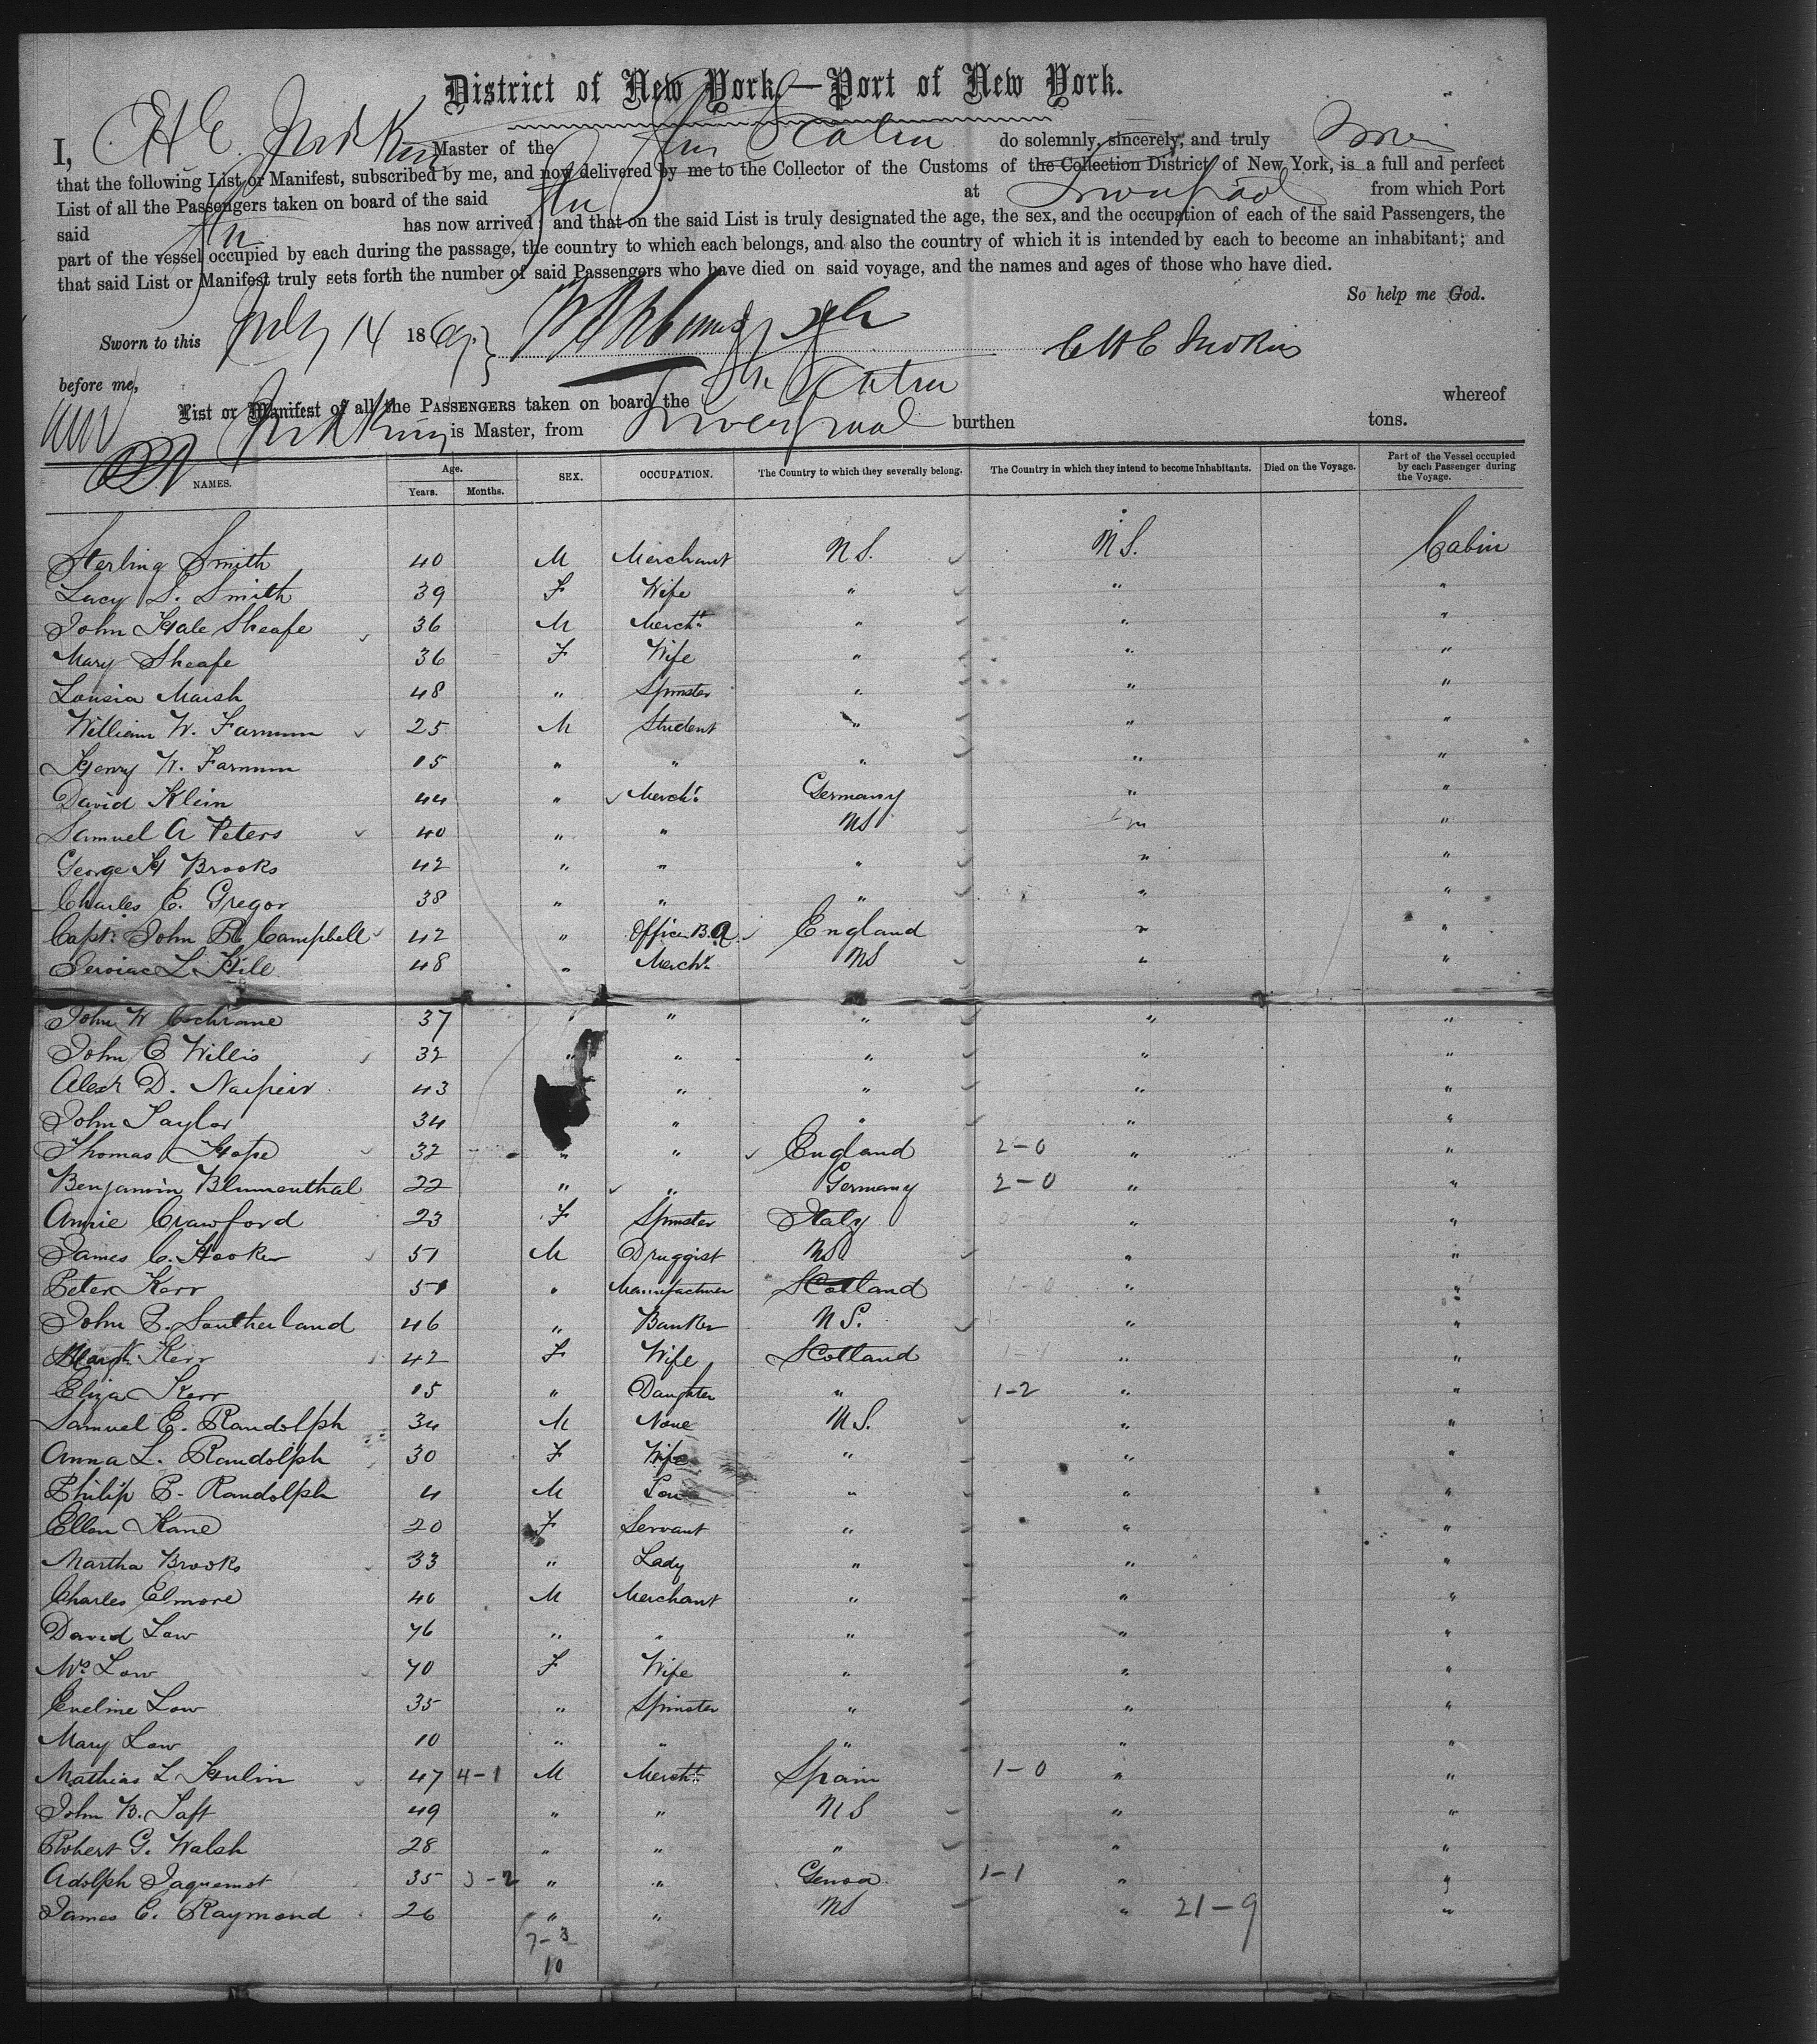 District of New York.—Port of New York.
I, C H E Judkins Master of the Str Scotia do solemnly, sincerely, and truly swear
that the following List or Manifest, subscribed by me, and now delivered by me to the Collector of the Customs of the Collection District of New York, is a full and perfect
List of all the Passengers taken on board of the said Str at Liverpool from which Port
said Str has now arrived; and that on the said List is truly designated the age, the sex, and the occupation of each of the said Passengers, the
part of the vessel occupied by each during the passage, the country to which each belongs, and also the country of which it is intended by each to become an inhabitant; and
that said List or Manifest truly sets forth the number of said Passengers who have died on said voyage, and the names and ages of those who have died.
So help me God.
Sworn to this July 14 1869 C H E Judkins
before me,
List or Manifest of all the PASSENGERS taken on board the Str Scotia whereof
Judkins is Master, from Liverpool burthen tons.
NAMES. Age. Years. Months. SEX. OCCUPATION. The Country to which they severally belong. The Country in which they intend to become Inhabitants. Died on the Voyage. Part of the Vessel occupied by each Passenger during the Voyage.
Sterling Smith 40 M Merchant U S. U S. Cabin
Lucy S. Smith 39 F Wife " " "
John Hale Sheafe 36 M Mercht " " "
Mary Sheafe 36 F Wife " " "
Lousia Marsh 48 " Spinster " " "
William W. Farnum 25 M Student " " "
Henry W. Farnum 15 " " " " "
David Klein 44 " Mercht Germany " "
Samuel A Peters 40 " " U S " "
George H Brooks 42 " " " " "
Charles C. Gregor 38 " " " " "
Capt: John R Campbell 42 " Officer B.A. England " "
L. Hill 48 " Mercht U S " "
John W Cochrane 37 " " " " "
John C Willis 32 " " " " "
Alexr D. Napeir 43 " " " "
John Taylor 34 " " " "
Thomas Hope 32 " " England 2-0 " "
Benjamin Blumenthal 22 " " Germany 2-0 " "
Annie Crawford 23 F Spinster Italy " "
James C. Hooker 51 M Druggist U S " "
Peter Kerr 51 " Manufacturer Scotland 1-0 " "
John P. Southerland 46 " Banker U S. " "
Margt Kerr 42 F Wife Scotland " "
Eliza Kerr 15 " Daughter " 1-2 " "
Samuel E. Randolph 34 M None U S. " "
Anna L. Randolph 30 F Wife " " "
Philip P. Randolph 4 M Son " " "
Ellen Kane 20 F Servant " " "
Martha Brooks 33 " Lady " " "
Charles Elmore 40 M Merchant " " "
David Low 76 " " " " "
Mrs Low 70 F Wife " " "
Eveline Low 35 " Spinster " " "
Mary Low 10 " " " " "
Mathias L Hulin 47 4-1 M Mercht Spain 1-0 " "
John B. Taft 49 " " U S " "
Robert G. Walsh 28 " " " " "
Adolph Jaquemot 35 3-2 " " Genoa 1-1 " "
James C. Raymond 26 " " U S " 21-9 "
7-3
10